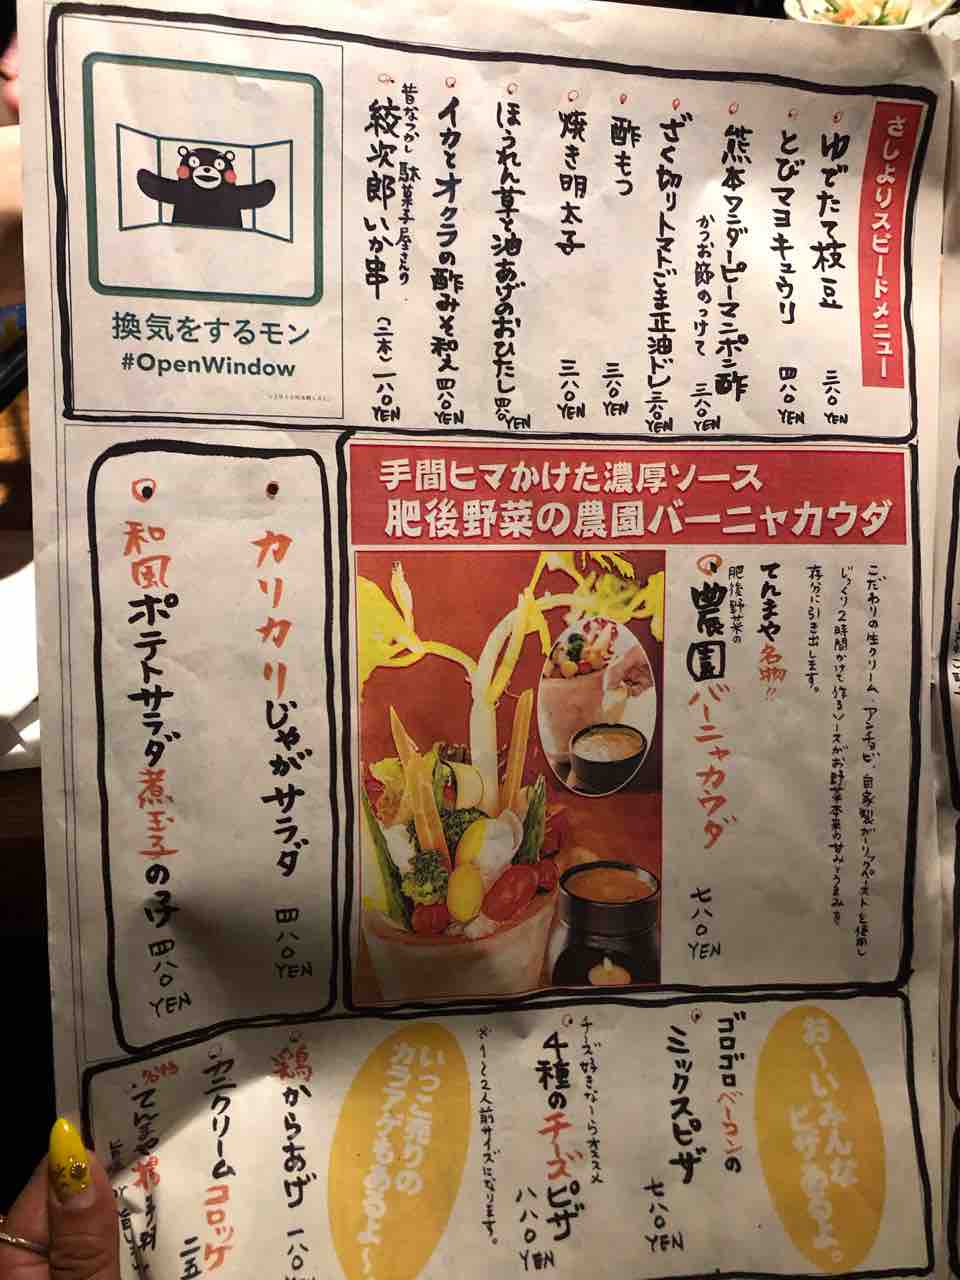 さしよりスピードメニュー
ゆでたて枝豆 三八〇YEN
とびマヨキュウリ 四八〇YEN
熊本ワンダーピーマンポン酢
かつお節のっけて 三八〇YEN
ざく切りトマトごま正油ドレ 三八〇YEN
酢もつ 三八〇YEN
焼き明太子 三八〇YEN
ほうれん草と油あげのおひたし 四八〇YEN
イカとオクラの酢みそ和え 四八〇YEN
昔なつかし駄菓子屋さんの
絞次郎いか串 (二本) 一八〇YEN
換気をするモン
#OpenWindow
手間ヒマかけた濃厚ソース
肥後野菜の農園バーニャカウダ
こだわりの生クリーム、アンチョビ、自家製ガーリックペーストを使用し
じっくり2時間かけて作るソースがお野菜本来の甘みとうまみを
存分に引き出します。
てんまや名物!!
肥後野菜の
農園バーニャカウダ 七八〇YEN
カリカリじゃがサラダ 四八〇YEN
和風ポテトサラダ煮玉子のっけ 四八〇YEN
お〜いみんな
ピザあるよ。
ゴロゴロベーコンの
ミックスピザ 七八〇YEN
チーズ好きなーらオススメ
4種のチーズピザ 八八〇YEN
※1〜2人前サイズになります。
いっこ売りの
カラアゲもあるよ〜
鶏からあげ 一八〇
カニクリームコロッケ 二五
名物
てんまや